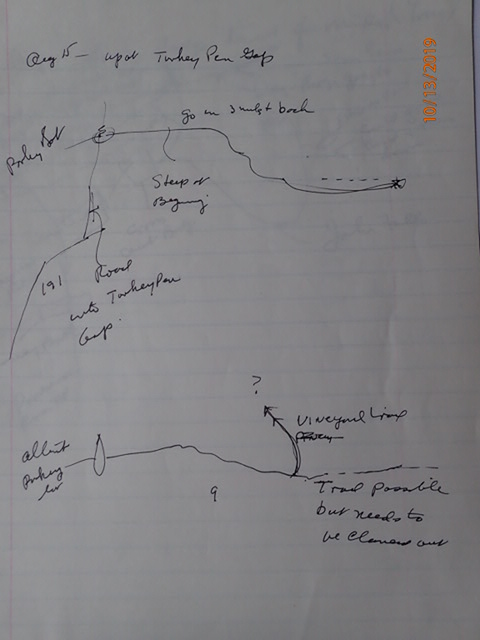 Aug 15 - up at Turkey Pen Gap
10/13/2019
go in 3 miles + back
Parking lot
Steep at
Beginning
191
Road
into Turkey Pen
Gap.
?
Vineyard Trail
Parking
lot
9
Trail possible
but needs to
be cleaned out